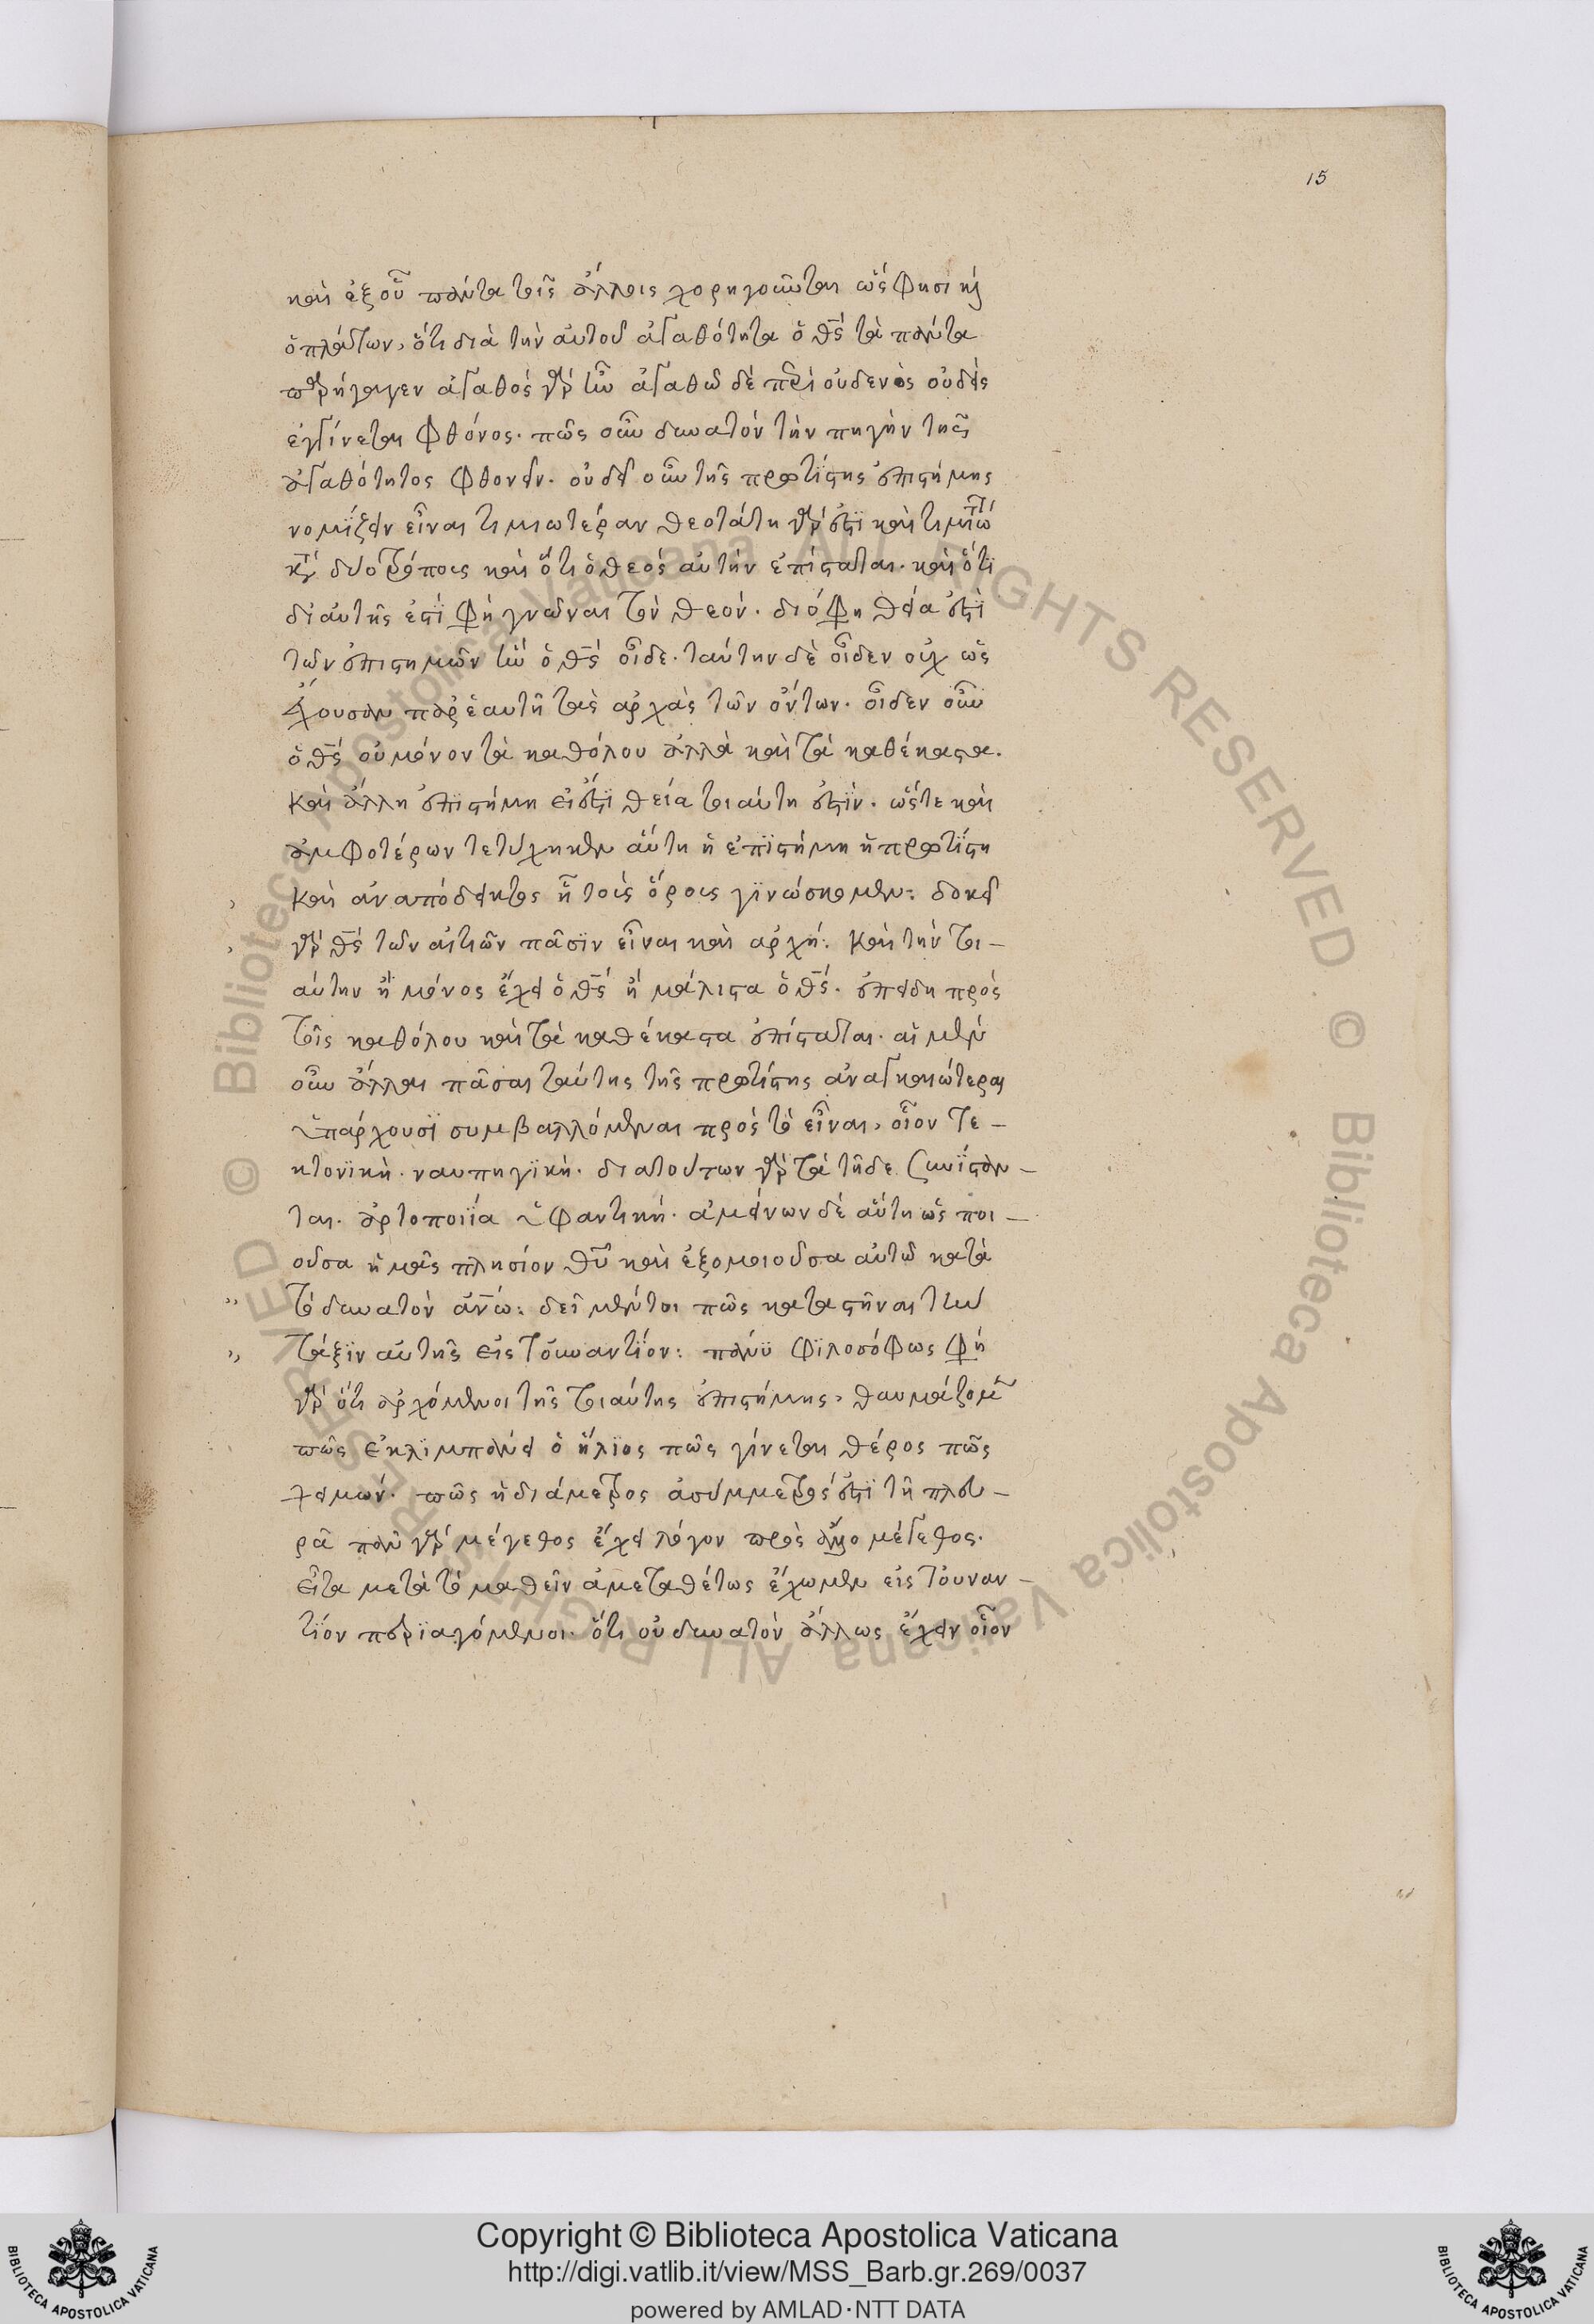 15
καὶ ἐξ οὗ πάντα τοῖς ἄλλοις χορηγοῦνται ὥς φησι καὶ
ὁ πλάτων, ὅτι διὰ τὴν αὐτοῦ ἀγαθότητα ὁ θς τὰ πάντα
παρήγαγεν ἀγαθὸς γὰρ ἦν ἀγαθῶ δὲ περὶ οὐδενὸς οὐδεὶς
ἐγγίνεται φθόνος. πῶς οὖν δυνατὸν τὴν πηγὴν τῆς
ἀγαθότητος φθονεῖν. οὐδεῖ οὖν τῆς πρωτίστης ἐπιστήμης
νομίζειν εἶναι τιμιωτέραν θεοτάτη γάρ ἐστι καὶ τιμιω
κὴ δύο τρόποις καὶ ὅτι ὁ θεὸς αὐτὴν ἐπίσταται. καὶ ὅτι
δι αὐτῆς ἐστὶ φη γνῶναι τὸν θεόν. διό φη θεία ἐστὶ
τῶν ἐπιστημῶν ἣν ὁ θς οἶδε. ταύτην δὲ οἶδεν οὐχ ὡς
ἔχουσαν παρ ἑαυτῆ τὰς ἀρχὰς τῶν ὄντων. οἶδεν οὖν
ὁ θς οὐ μόνον τὰ καθόλου ἀλλὰ καὶ τὰ καθέκαστα.
καὶ ἄλλη ἐπιστήμη εἰ ἔστι θεία τοιαύτη ἐστίν. ὥστε καὶ
ἀμφοτέρων τετύχηκεν αὕτη ἡ ἐπιστήμη ἡ πρωτίστη
καὶ ἀναπόδεικτος ἧ τοὺς ὅρους γινώσκομεν: δοκεῖ
γὰρ θς τῶν αἰτιῶν πᾶσιν εἶναι καὶ ἀρχή: καὶ τὴν τοι-
αύτην ἢ μόνος ἔχει ὁ θς ἢ μάλιστα ὁ θς. ἐπειδὴ πρὸς
τοῖς καθόλου καὶ τὰ καθέκαστα ἐπίσταται. αἱ μὲν
οὖν ἄλλαι πᾶσαι ταύτης τῆς πρωτίστης ἀναγκαιώτεραι
ὑπάρχουσι συμβαλλόμεναι πρὸς τὸ εἶναι, οἷον τε-
κτονικὴ. ναυπηγικὴ. διὰ τούτων γὰρ τὰ τῆδε συνίσταν-
ται. ἀρτοποιία ὑφαντική. ἀμείνων δὲ αὕτη ὡς ποι-
οῦσα ἡμᾶς πλησίον θυ καὶ ἐξομοιοῦσα αὐτῶ κατὰ
τὸ δυνατὸν ἀνω: δεῖ μέντοι πῶς καταστῆναι τὴν
τάξιν αὐτῆς εἰς τοὐναντίον: πάνυ φιλοσόφως φη
γὰρ ὅτι ἀρχόμενοι τῆς τοιαύτης ἐπιστήμης, θαυμάζομεν
πῶς ἐκλιμπάνει ὁ ἥλιος πῶς γίνεται θέρος πῶς
χειμών. πῶς ἡ διάμετρος ἀσύμμετρός ἐστι τῆ πλευ-
ρᾶ πᾶν γὰρ μέγεθος ἔχει λόγον πρὸς ἄλλο μέγεθος.
εἶτα μετὰ τὸ μαθεῖν ἀμεταθέτως ἔχωμεν εἰς τοὐναν-
τίον περιαγόμενοι. ὅτι οὐ δυνατὸν ἄλλως ἔχειν οἷον
Copyright © Biblioteca Apostolica Vaticana
http://digi.vatlib.it/view/MSS_Barb.gr.269/0037
powered by AMLAD·NTT DATA
BIBLIOTECA APOSTOLICA VATICANA
BIBLIOTECA APOSTOLICA VATICANA
© Biblioteca Apostolica Vaticana ALL RIGHTS RESERVED
© Biblioteca Apostolica Vaticana ALL RIGHTS RESERVED